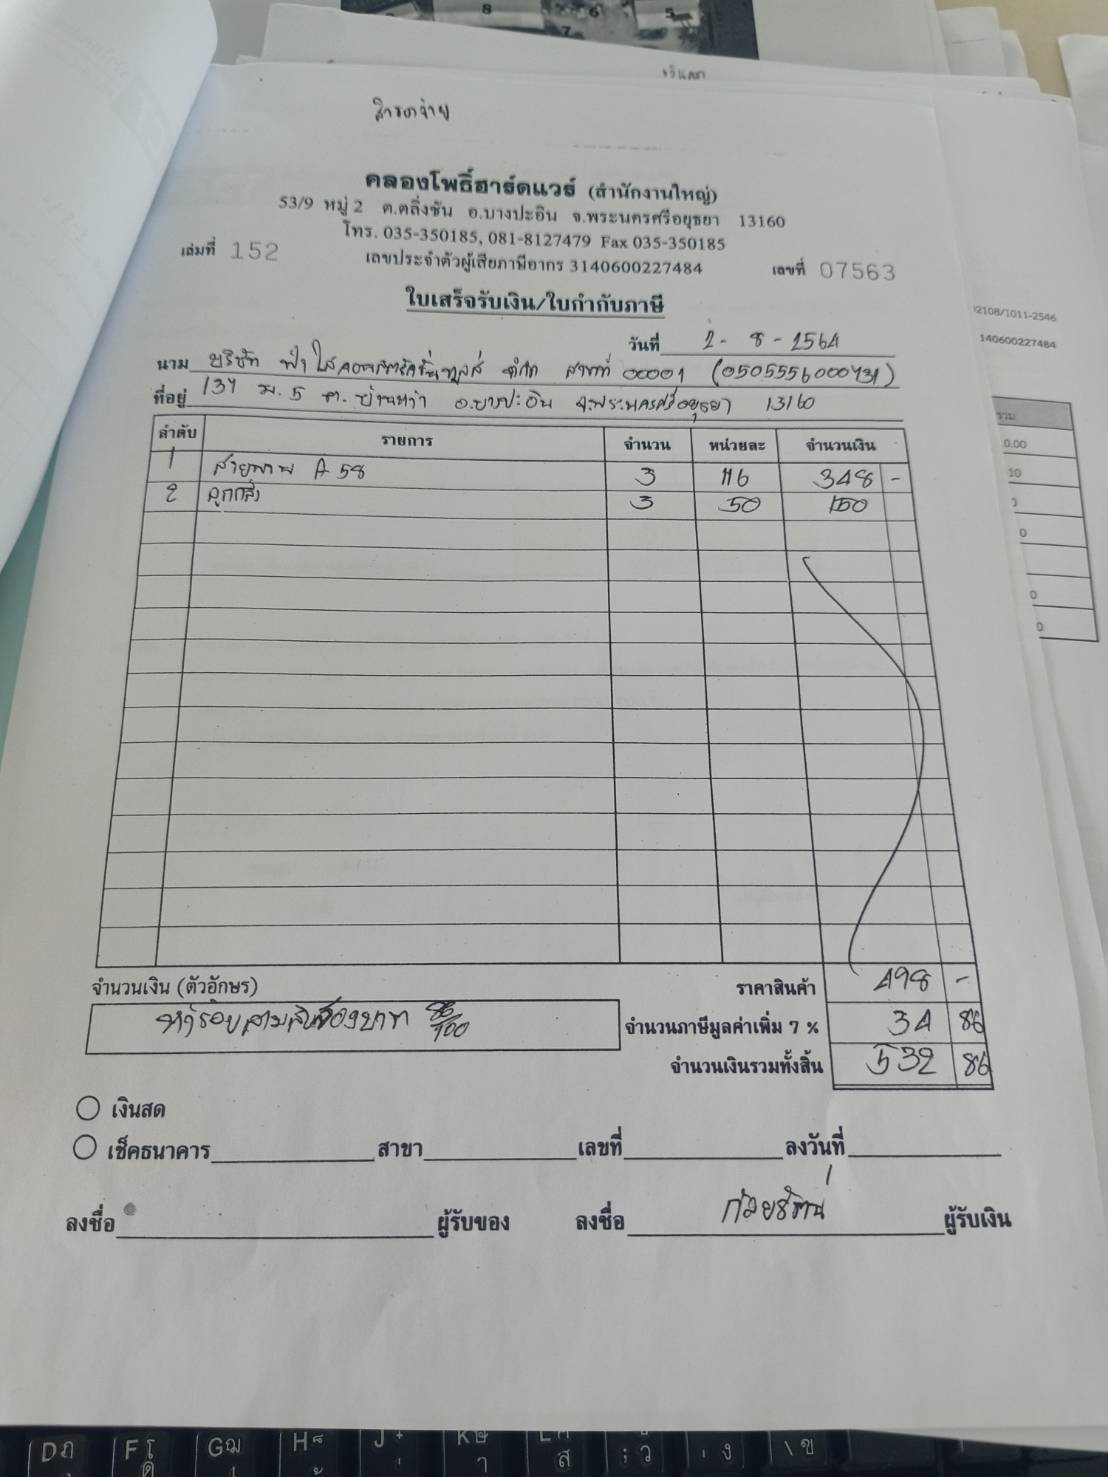 8 6 5
7
สำรองจ่าย
คลองโพธิ์ฮาร์ดแวร์ (สำนักงานใหญ่)
53/9 หมู่ 2 ต.ตลิ่งชัน อ.บางปะอิน จ.พระนครศรีอยุธยา 13160
โทร. 035-350185, 081-8127479 Fax 035-350185
เลขประจำตัวผู้เสียภาษีอากร 3140600227484
เล่มที่ 152 เลขที่ 07563
ใบเสร็จรับเงิน/ใบกำกับภาษี
วันที่ 2-8-2564
นาม บริษัท ฟ้าใสคอนสตรัคชั่นทูลส์ จำกัด สาขาที่ 00001 (0505556000731)
ที่อยู่ 137 ม.5 ต.บ้านหว้า อ.บางปะอิน จ.พระนครศรีอยุธยา 13160
ลำดับ รายการ จำนวน หน่วยละ จำนวนเงิน
1 สายพาน A 58 3 116 348 -
2 ลูกกลิ้ง 3 50 150
จำนวนเงิน (ตัวอักษร) ราคาสินค้า 498 -
ห้าร้อยสามสิบสองบาท 86/100 จำนวนภาษีมูลค่าเพิ่ม 7 % 34 86
จำนวนเงินรวมทั้งสิ้น 532 86
เงินสด
เช็คธนาคาร สาขา เลขที่ ลงวันที่
ลงชื่อ ผู้รับของ ลงชื่อ ผู้รับเงิน
2108/1011-2546
140600227484
รวม
0.00
10
0
0
0
D F G H J K L